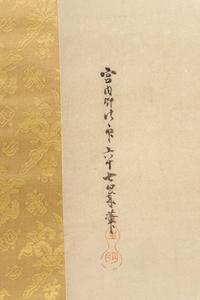 宮内卿法印六十七歳筆